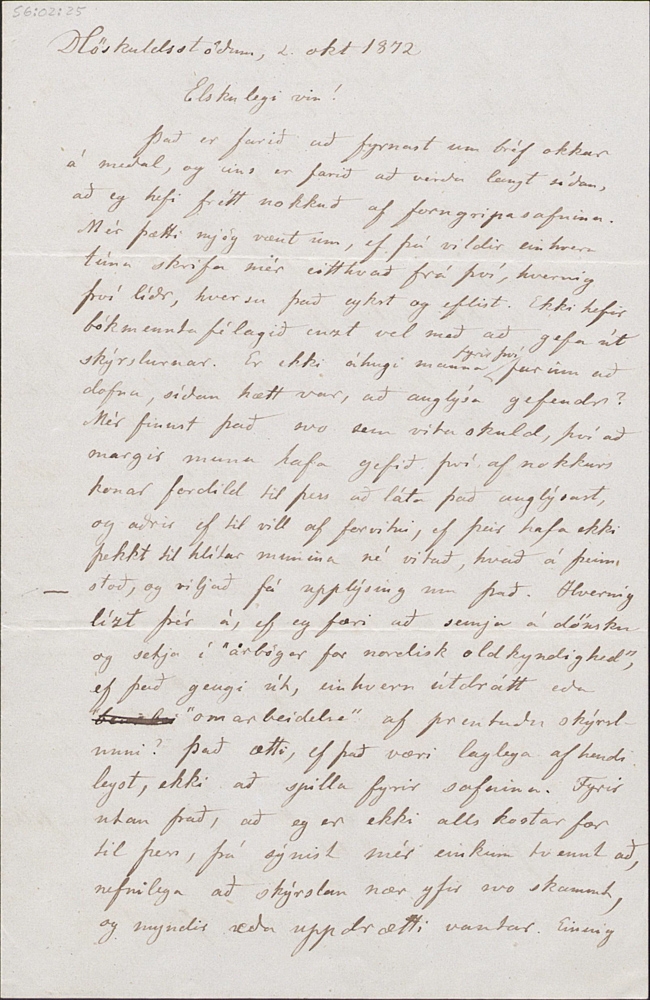 S6:02:25
Höskuldsstöðum, 2. okt 1872
Elskulegi vin!
Það er farið að fyrnast um bréf okkar
á meðal, og eins er farið að verða langt síðan,
að eg hefi frétt nokkuð af forngripasafninu.
Mér þætti mjög vænt um, ef þú vildir einhvern
tíma skrifa mér eitthvað frá því, hvernig
því líðr, hversu það eykst og eflist. Ekki hefir
bókmentafélagið enzt vel með að gefa út
skýrslurnar. Er ekki áhugi manna fyrir því farinn að
dofna, síðan hætt var, að auglýsa gefendr?
Mér finnst það svo sem vita skuld, því að
margir muna hafa gefið því af nokkurs
konar fordild til þess að láta það auglýsast,
og aðrir ef til vill af forvitni, ef þeir hafa ekki
þekkt til hlítar munina né vitað, hvað á þeim
stóð, og viljað fá upplýsing um það. Hvernig
lízt þér á, ef eg færi að semja á dönsku
og setja í "årböger for nordisk oldkyndighed",
ef það gengi út, einhvern útdrátt eða
"omarbeidelse" af prentuðu skýrsl-
unni? Það ætti, ef það væri laglega af hendi
leyst, ekki að spilla fyrir safninu. Fyrir
utan það, að eg er ekki alls kostar fær
til þess, þá sýnist mér einkum tvennt að,
nefnilega að skýrslan nær yfir svo skammt,
og myndir eða uppdrætti vantar. Einnig